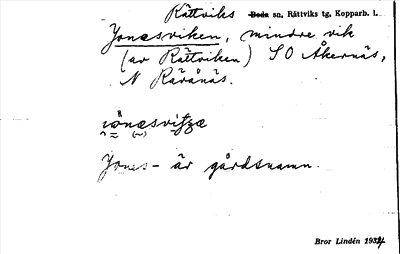 Rättviks ~~Boda~~ sn, Rättviks tg, Kopparb. l.
Jonasviken, mindre vik
(av Rättviken) SO Åkernäs,
N Råvånäs.
Jones- är gårdsnamn.
Bror Lindén 1934